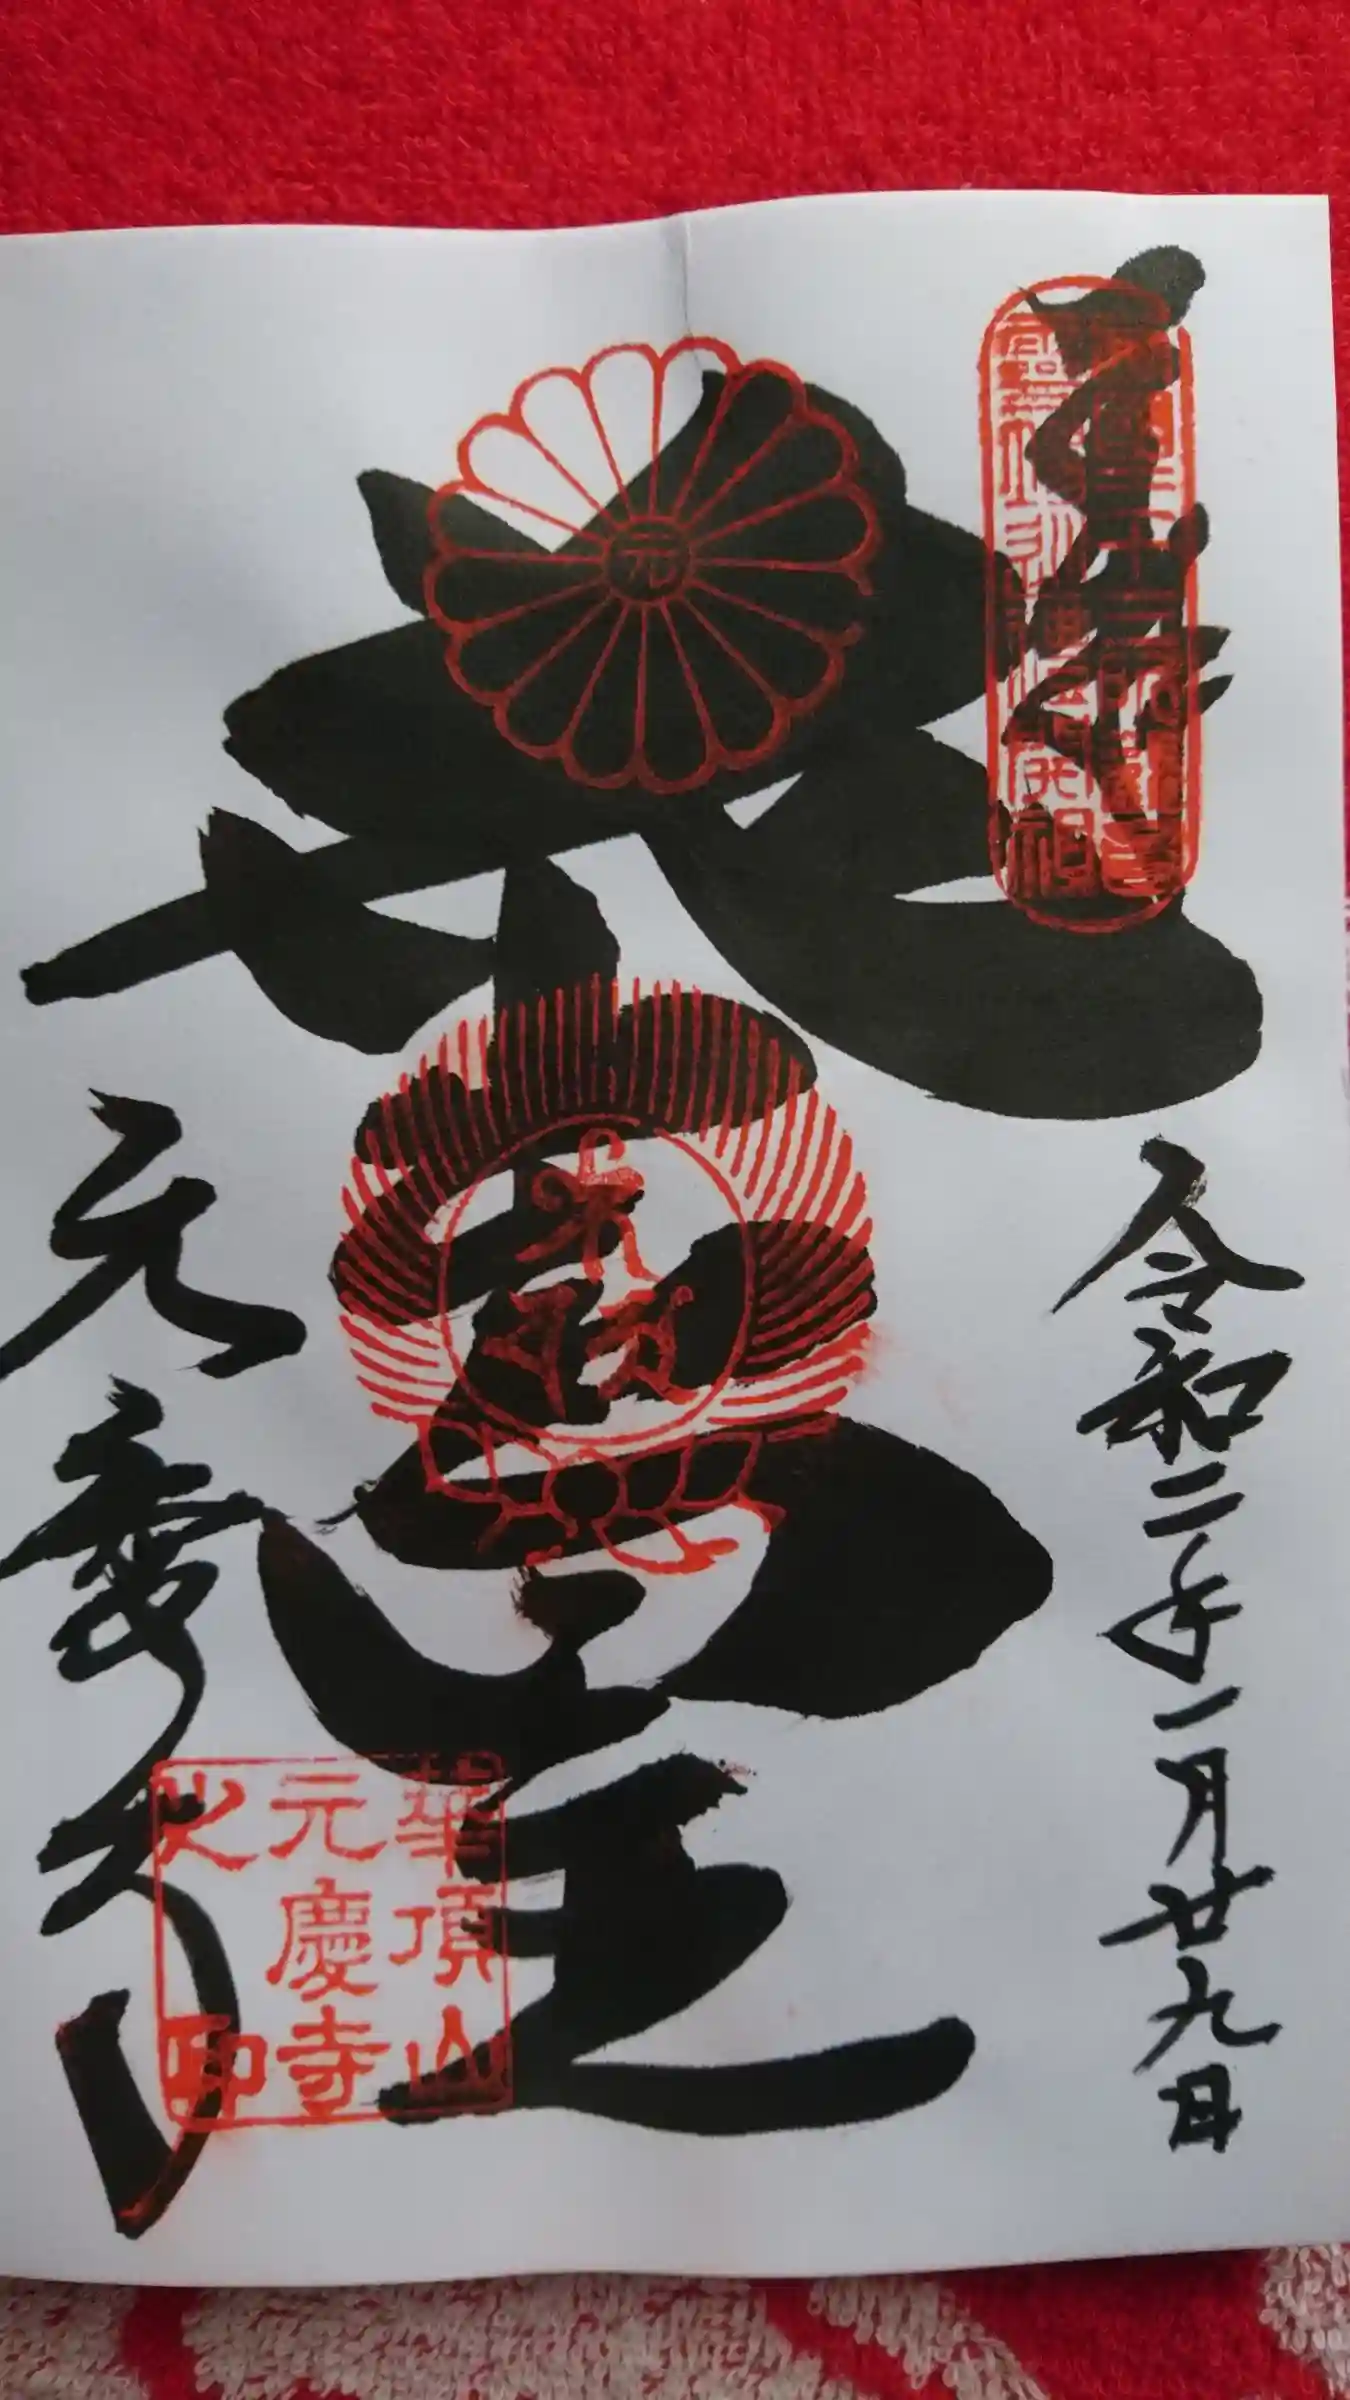 奉拝
令和二年一月廿九日
薬壺王
元
元慶寺
華頂山
元慶寺
之印